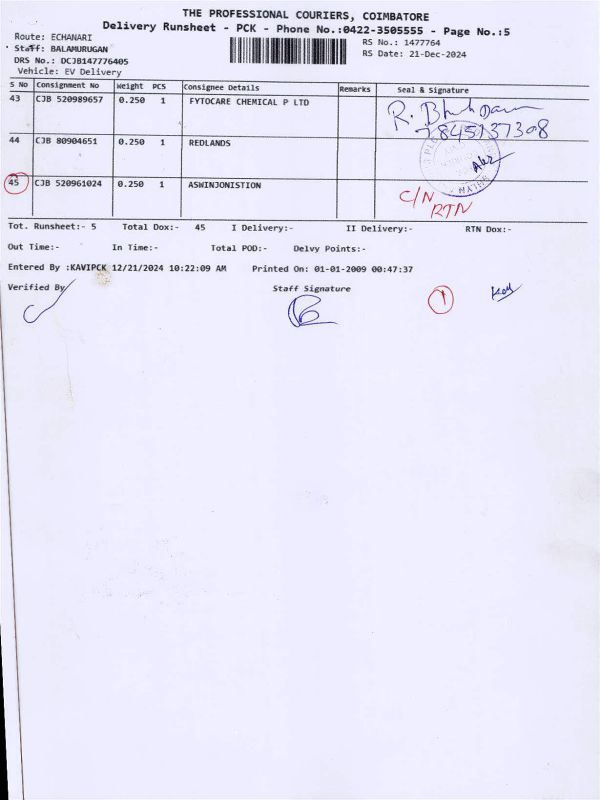 THE PROFESSIONAL COURIERS, COIMBATORE
Delivery Runsheet - PCK - Phone No.:0422-3505555 - Page No.:5
Route: ECHANARI
RS No.: 1477764
Staff: BALAMURUGAN
RS Date: 21-Dec-2024
DRS No.: DCJB147776405
Vehicle: EV Delivery
S No Consignment No Weight PCS Consignee Details Remarks Seal & Signature
43 CJB 520989657 0.250 1 FYTOCARE CHEMICAL P LTD
R.
7845137308
44 CJB 80904651 0.250 1 REDLANDS
45 CJB 520961024 0.250 1 ASWINJONISTION
C/N
RTN
Tot. Runsheet:- 5 Total Dox:- 45 I Delivery:- II Delivery:- RTN Dox:-
Out Time:- In Time:- Total POD:- Delvy Points:-
Entered By :KAVIPCK 12/21/2024 10:22:09 AM Printed On: 01-01-2009 00:47:37
Verified By Staff Signature
1